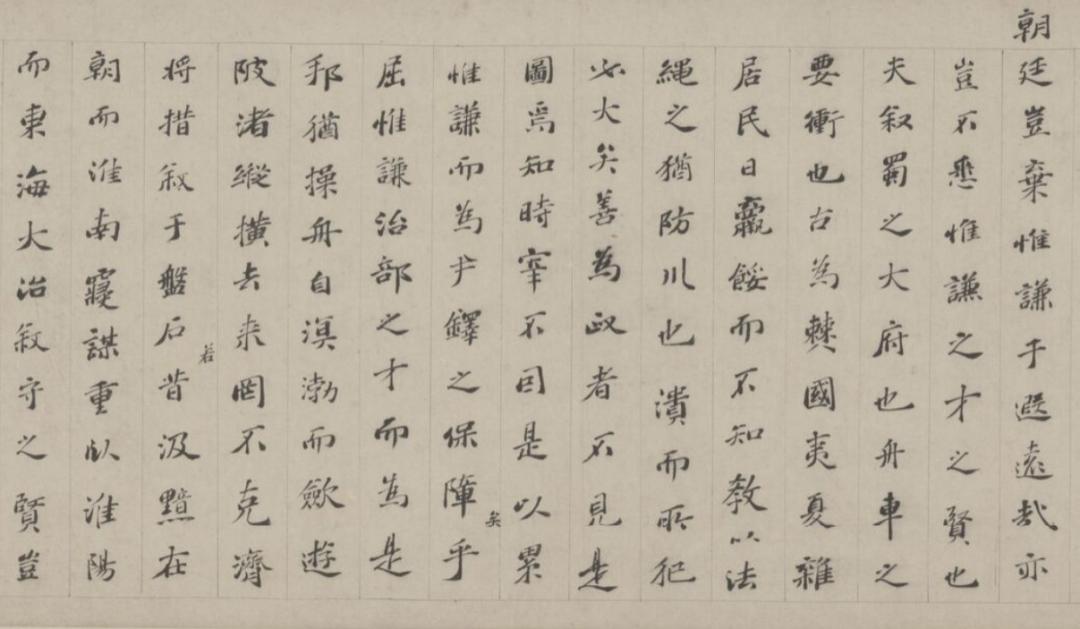 朝廷豈棄惟謙于遐遠哉亦
豈不悉惟謙之才之賢也
夫叙蜀之大府也舟車之
要衝也古為僰國夷夏雜
居民日羸餒而不知教以法
繩之猶防川也潰而所犯
必大矣善為政者不見是
圖焉知時宰不因是以累
惟謙而為尹鐸之保障矣乎
屈惟謙治部之才而為是
邦猶操舟自溟渤而歛遊
陂渚縱橫去来罔不克濟
将措叙于盤石若昔汲黯在
朝而淮南寢謀重臥淮陽
而東海大治叙守之賢豈